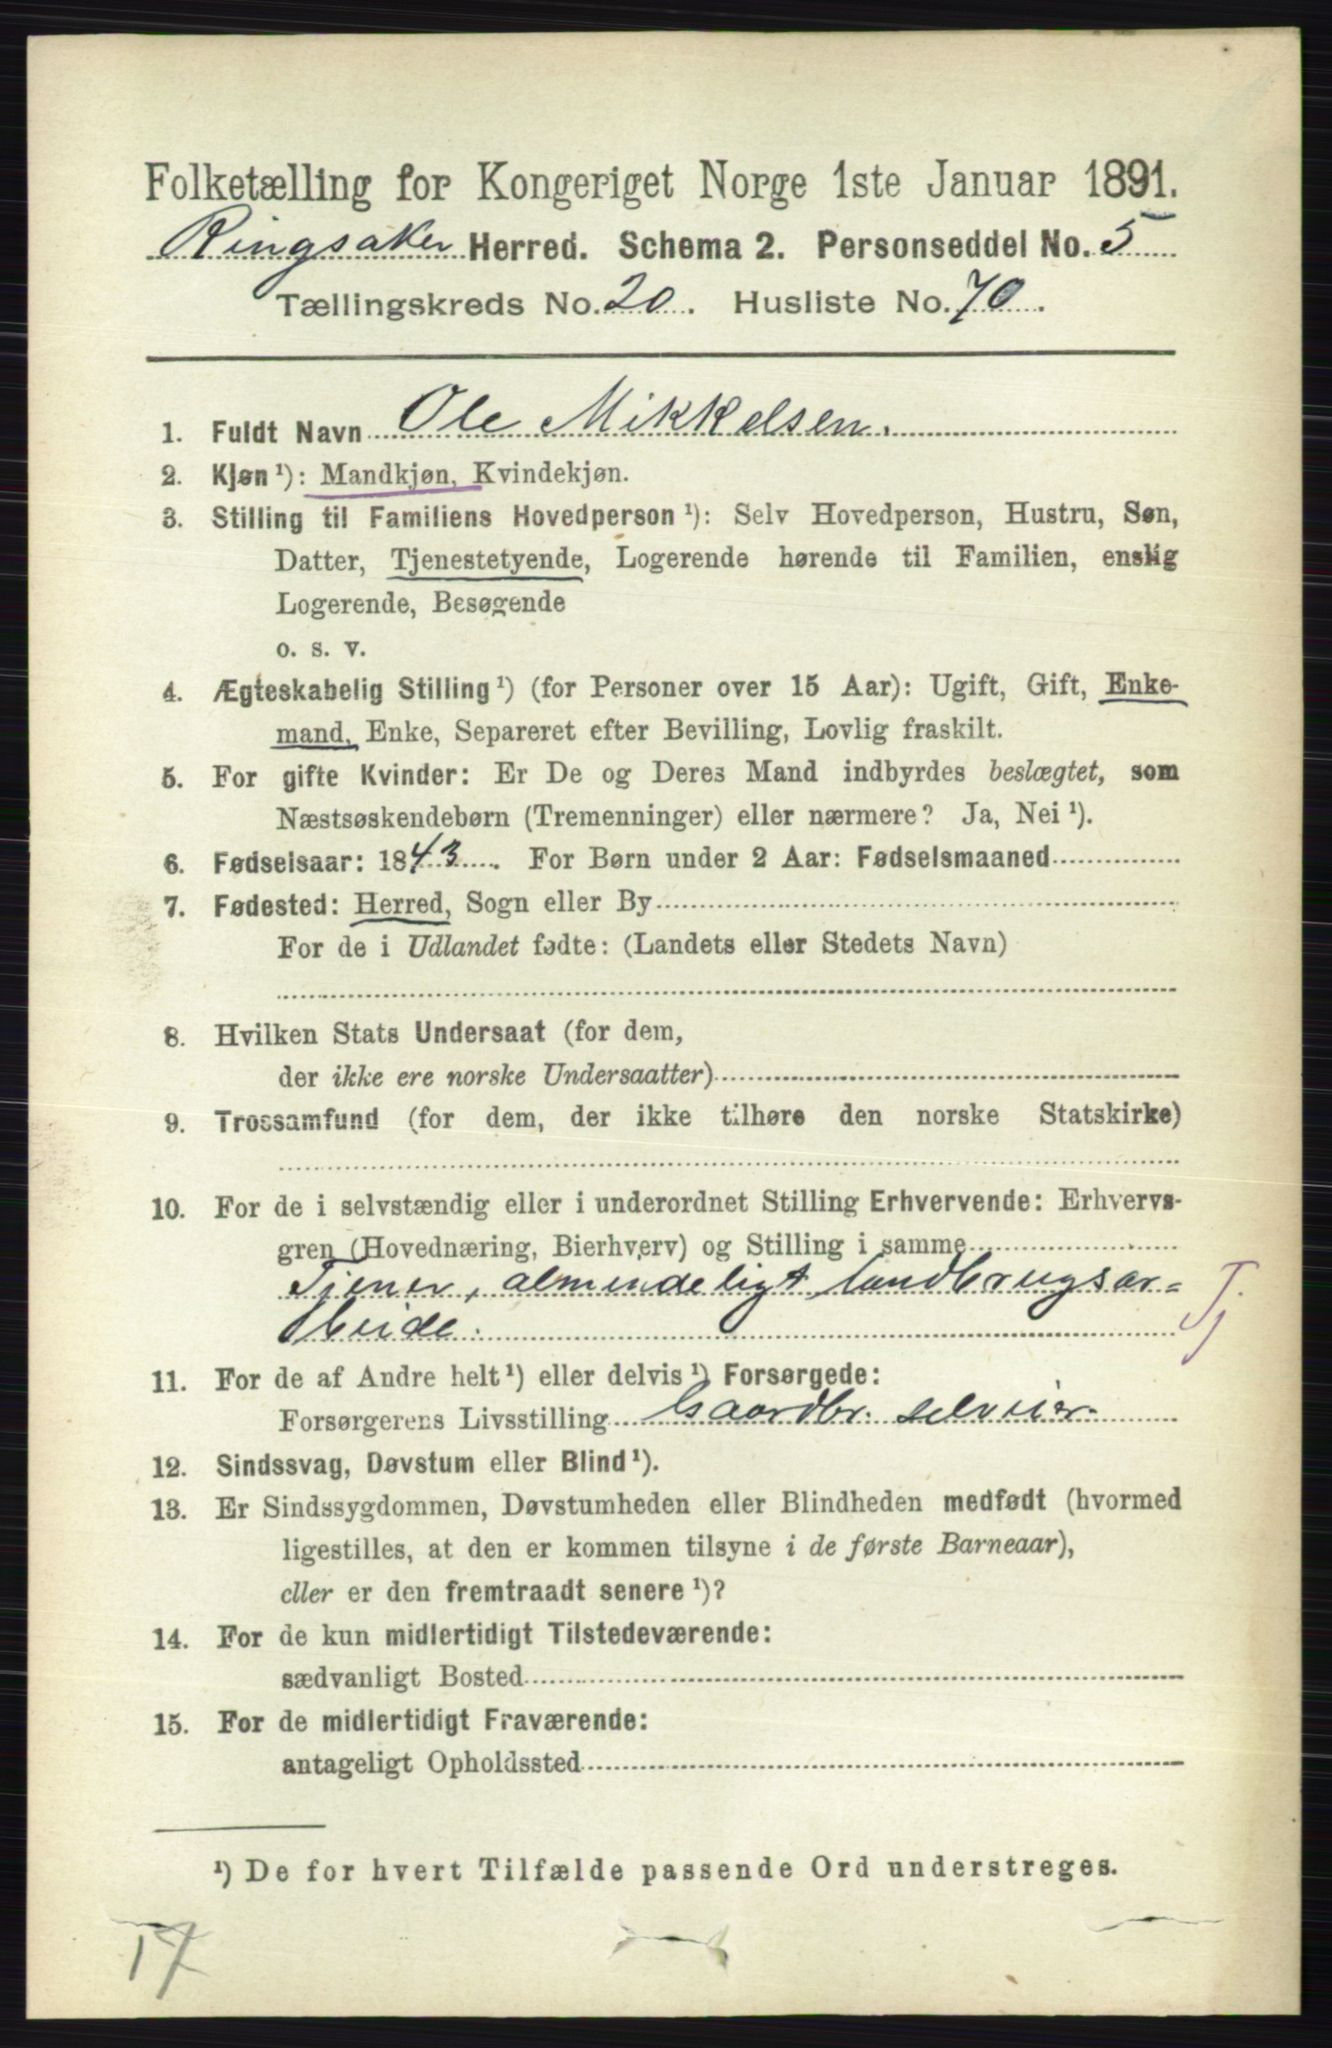 Folketælling for Kongeriget Norge 1ste Januar 1891.
Ringsaker Herred. Schema 2. Personseddel No. 5
Tællingskreds No. 20. Husliste No. 70.
1. Fuldt Navn Ole Mikkelsen.
2. Kjøn ¹): Mandkjøn, Kvindekjøn.
3. Stilling til Familiens Hovedperson ¹): Selv Hovedperson, Hustru, Søn,
Datter, Tjenestetyende, Logerende hørende til Familien, enslig
Logerende, Besøgende
o. s. v.
4. Ægteskabelig Stilling ¹) (for Personer over 15 Aar): Ugift, Gift, Enke-
mand, Enke, Separeret efter Bevilling, Lovlig fraskilt.
5. For gifte Kvinder: Er De og Deres Mand indbyrdes beslægtet, som
Næstsøskendebørn (Tremenninger) eller nærmere? Ja, Nei ¹).
6. Fødselsaar: 1843. For Børn under 2 Aar: Fødselsmaaned
7. Fødested: Herred, Sogn eller By
For de i Udlandet fødte: (Landets eller Stedets Navn)
8. Hvilken Stats Undersaat (for dem,
der ikke ere norske Undersaatter)
9. Trossamfund (for dem, der ikke tilhøre den norske Statskirke)
10. For de i selvstændig eller i underordnet Stilling Erhvervende: Erhvervs-
gren (Hovednæring, Bierhverv) og Stilling i samme
Tjener, almindeligt landbrugsar-
beide. Tj
11. For de af Andre helt ¹) eller delvis ¹) Forsørgede:
Forsørgerens Livsstilling Gaardbr. selveier.
12. Sindssvag, Døvstum eller Blind ¹).
13. Er Sindssygdommen, Døvstumheden eller Blindheden medfødt (hvormed
ligestilles, at den er kommen tilsyne i de første Barneaar),
eller er den fremtraadt senere ¹)?
14. For de kun midlertidigt Tilstedeværende:
sædvanligt Bosted
15. For de midlertidigt Fraværende:
antageligt Opholdssted
¹) De for hvert Tilfælde passende Ord understreges.
17